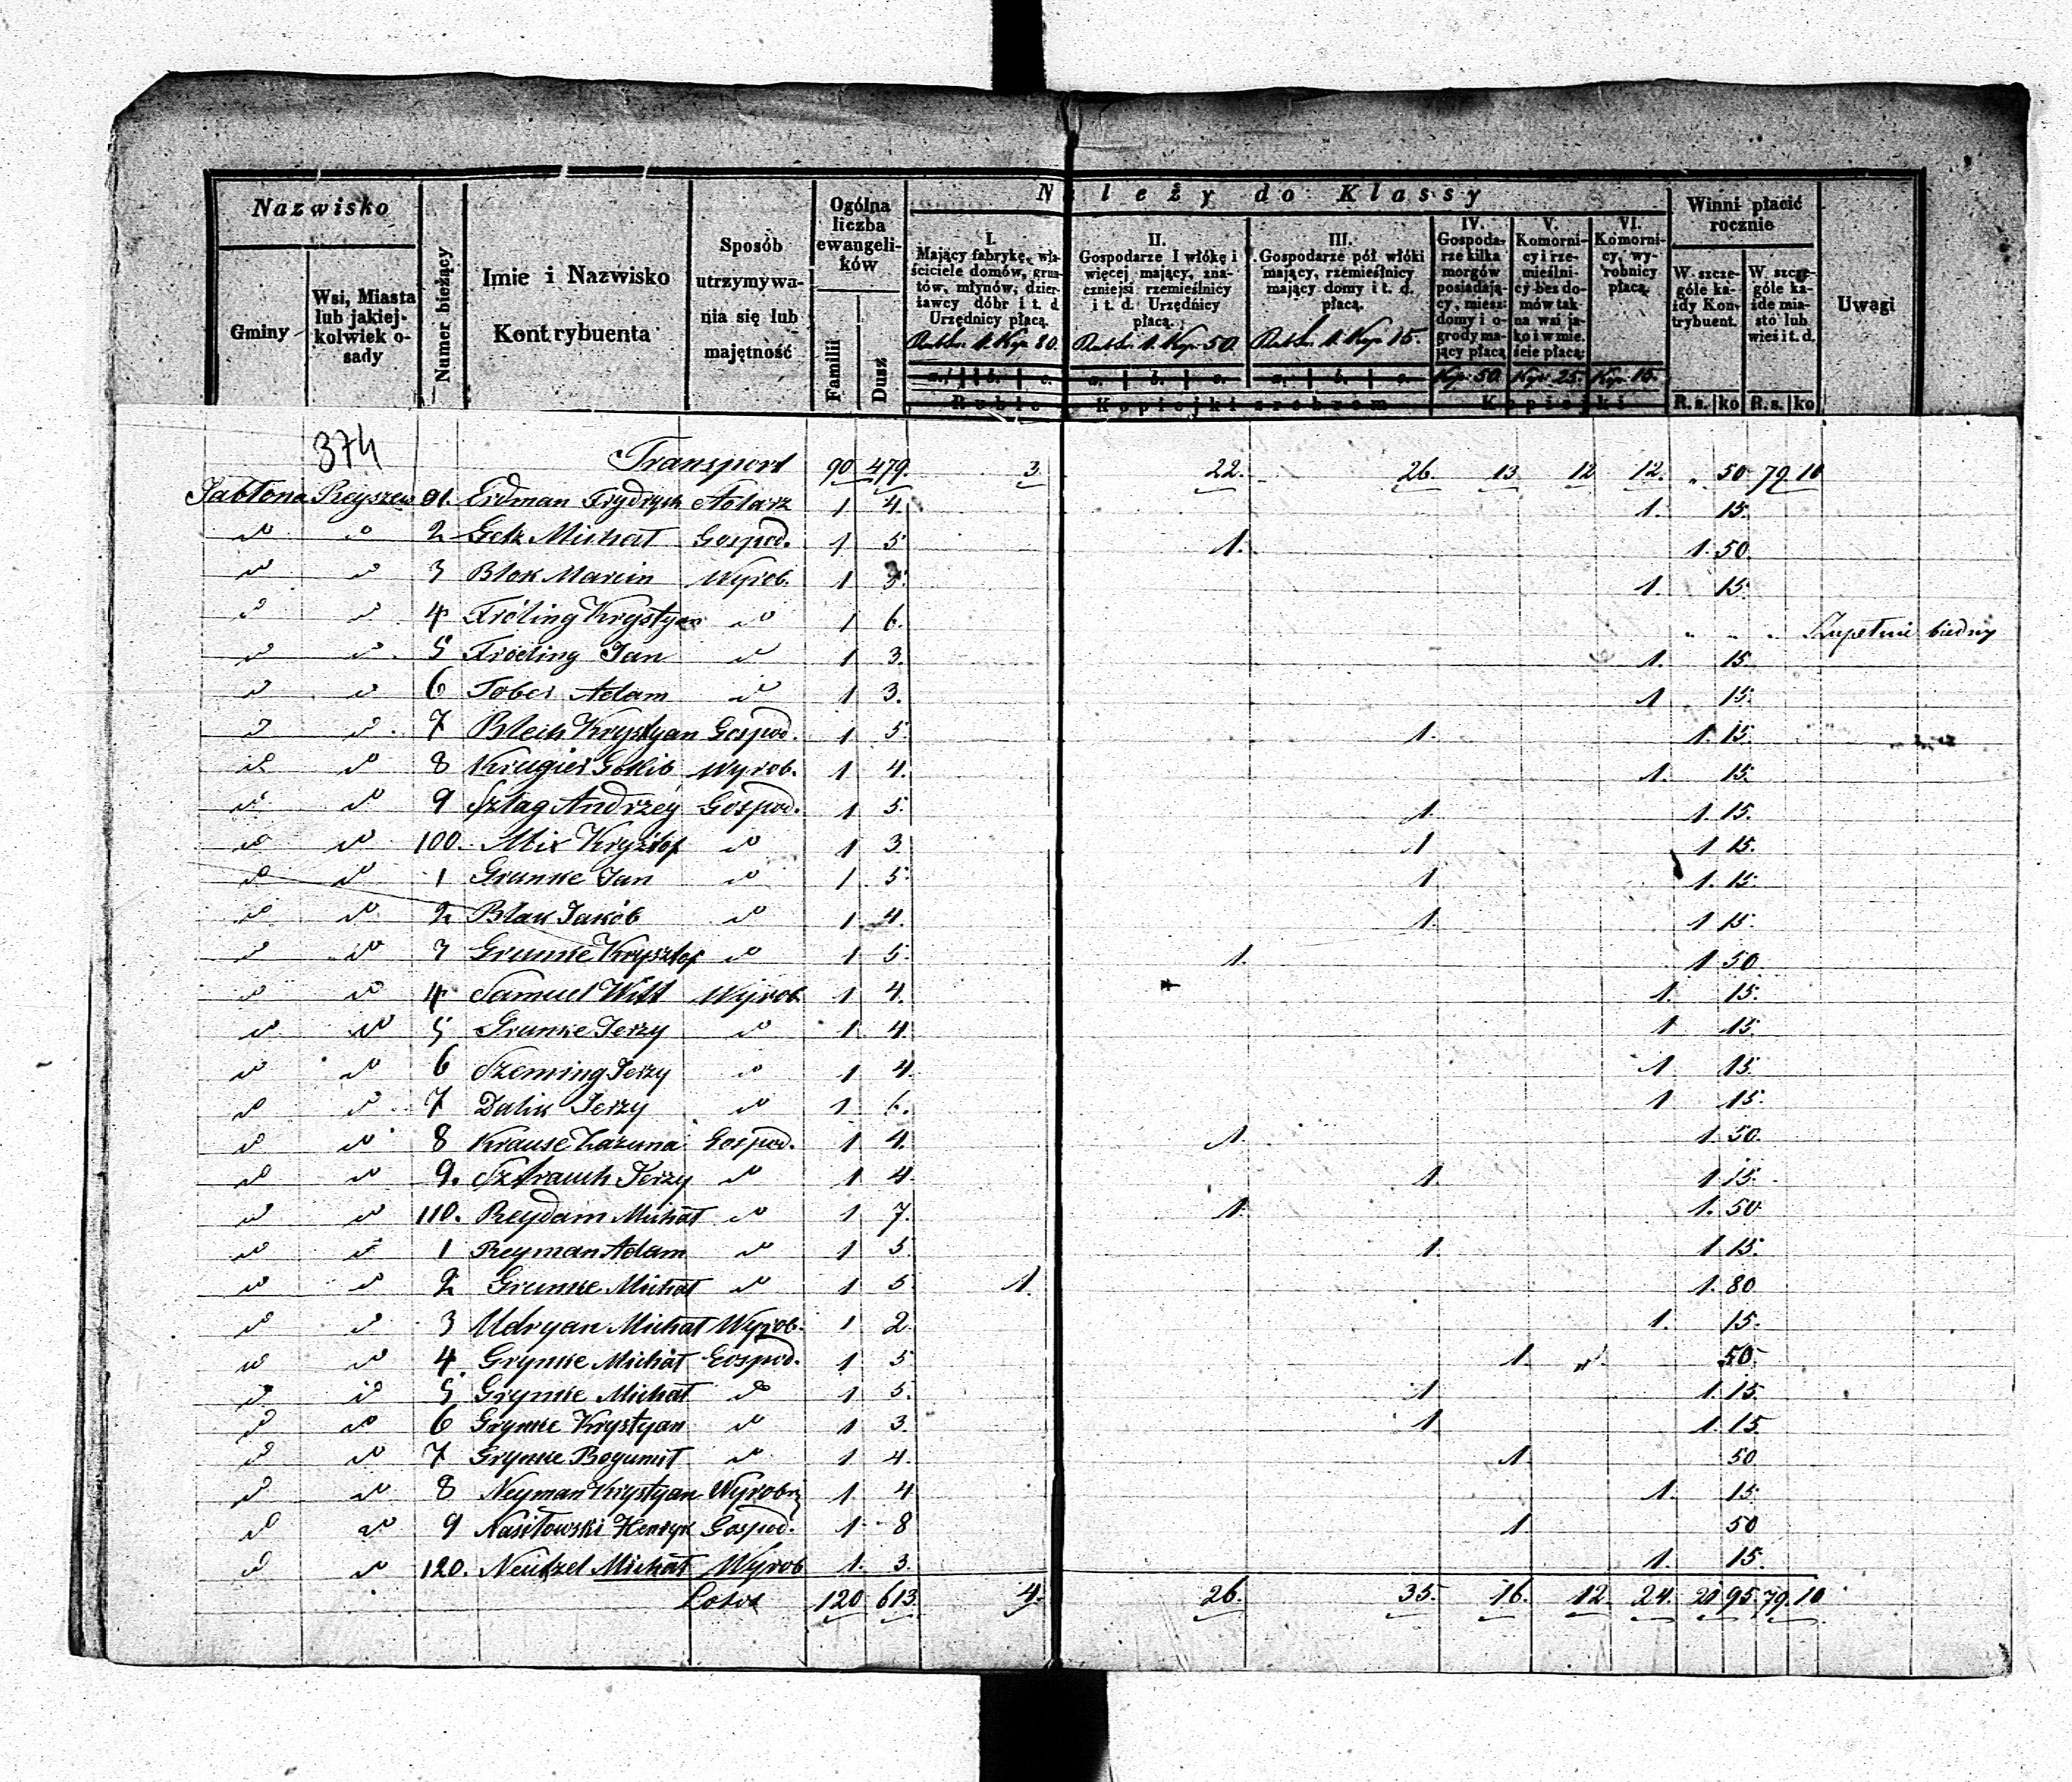 Nazwisko
Gminy
Wsi, Miasta lub jakiej-kolwiek o-sady
Numer bieżący
Imie i Nazwisko Kontrybuenta
Sposób utrzymywa-nia się lub majętność
Ogólna liczba ewangeli-ków
Familii
Dusz
Należy do Klassy
I. Mający fabrykę, wła-ściciele domów, grun-tów, młynów, dzier-żawcy dóbr i t. d Urzędnicy płacą.
Rubli 1. Kop 80.
II. Gospodarze I włókę i więcej mający, zna-czniejsi rzemieślnicy i t. d. Urzędnicy płacą.
Rubli 1. Kop. 50.
III. Gospodarze pół włóki mający, rzemieślnicy mający domy i t. d. płacą.
Rubli 1. Kop 15.
IV. Gospoda-rze kilka morgów posiadają-cy, miesz: domy i o-grody ma-jący płacą
Kop. 50.
V. Komorni-cy i rze-mieślni-cy bez do-mów tak na wsi ja-ko i w mie-ście płacą:
Kop. 25.
VI. Komorni-cy, wy-robnicy płacą
Kop. 15.
a. b. c. a. b. c. a. b. c.
Ruble Kopiejki srebrem Kopiejki
Winni płacić rocznie
W szcze-góle ka-żdy Kon-trybuent.
W szcze-góle ka-żde mia-sto lub wieś i t. d.
R. s. ko R. s. ko
Uwagi
374
Transport 90 479. 3 22. 26. 13 12 12. " 50 79 10
Jabłona 91. Erdman Frydrych Stolarz 1 4. 1. 15.
do do 2 Getz Michał Gospod. 1 5 1. 1. 50.
do do 3 Blok Marcin Wyrob. 1 5. 1. 15.
do do 4 Fröling Krystyan do 1 6. " " " Zupełnie biedny
do do 5 Fröeling Jan do 1 3. 1. 15
do do 6 Tober Adam do 1 3. 1 15.
do do 7 Blech Krystyan Gospod. 1 5. 1. 1. 15.
do do 8 Krugier Gotlib Wyrob. 1 4. 1. 15.
do do 9 Szlag Andrzey Gospod. 1 5. 1. 1. 15.
do do 100. Mix Krysztof do 1 3 1 1 15.
do do 1 Grunke Jan do 1 5. 1 1. 15.
do do 2 Blak Jakób do 1 4. 1. 1 15.
do do 3 Grunke Krysztof do 1 5. 1. 1 50.
do do 4 Samuel Witt Wyrob 1 4. 1. 15.
do do 5 Grunke Jerzy do 1 4. 1 15.
do do 6 Szeming Jerzy do 1 4. 1 15.
do do 7 Dalik Jerzy do 1 6. 1 15.
do do 8 Krause Gospod. 1 4. 1 1. 50.
do do 9. Sztrauch Jerzy do 1 4. 1. 1 15.
do do 110. Reydam Michał do 1 7. 1. 1. 50.
do do 1 Reyman Adam do 1 5. 1. 1 15.
do do 2 Grunke Michał do 1 5. 1. 1. 80
do do 3 Udryan Michał Wyrob. 1 2. 1. 15.
do do 4 Grynke Michał Gospod. 1 5 1. 50.
do do 5 Grynke Michał do 1 5. 1 1. 15.
do do 6 Grynke Krystyan do 1 3. 1 1. 15.
do do 7 Grynke Bogumił do 1 4. 1 50
do do 8 Neyman Krystyan Wyrobn 1 4 1. 15.
do do 9 Nasiłowski Henryk Gospod. 1 8 1 50
do do 120. Neutzel Michał Wyrob 1. 3. 1. 15.
120 613. 4. 26. 35. 16. 12. 24. 20 95. 79. 10